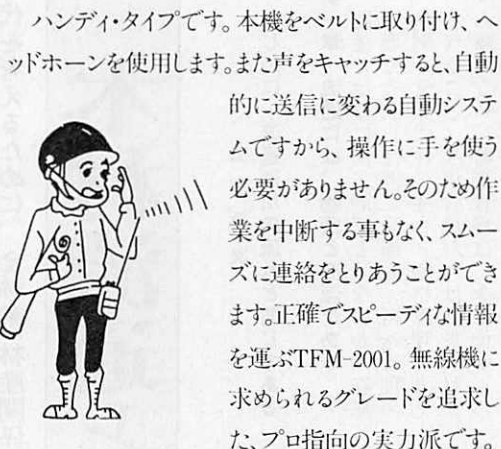 ハンディ・タイプです。本機をベルトに取り付け、ヘ
ッドホーンを使用します。また声をキャッチすると、自動
的に送信に変わる自動システ
ムですから、操作に手を使う
必要がありません。そのため作
業を中断する事もなく、スムー
ズに連絡をとりあうことができ
ます。正確でスピーディな情報
を運ぶTFM-2001。無線機に
求められるグレードを追求し
た、プロ指向の実力派です。